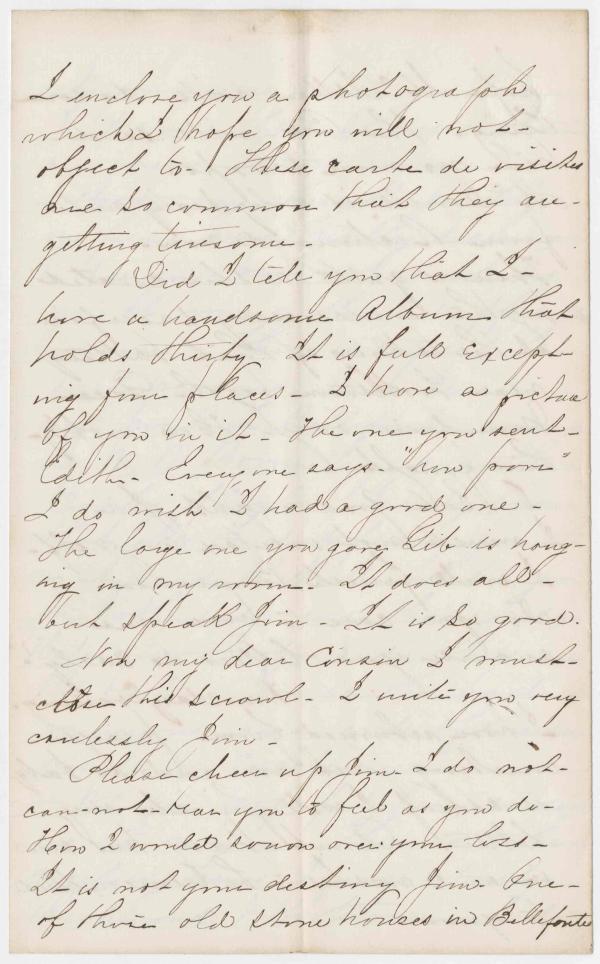 I enclose you a photograph
which I hope you will not-
object to- These carte de visites
are so common that they are-
getting tiresome-
Did I tell you that I-
have a handsome Album that
holds thirty It is full except-
ing four places- I have a picture
of you in it- The one you sent-
Edith- Everyone says- "how poor"
I do wish I had a good one-
The large one you gave Gib is hang-
ing in my room- It does all-
but speak Jim- It is so good.
Now my dear Cousin I must-
close this scrawl- I write you very
carelessly Jim-
Please cheer up Jim- I do not-
can-not-bear you to feel as you do-
How I would over your loss-
It is not your destiny Jim- One-
of those old stone houses in Bellefonte